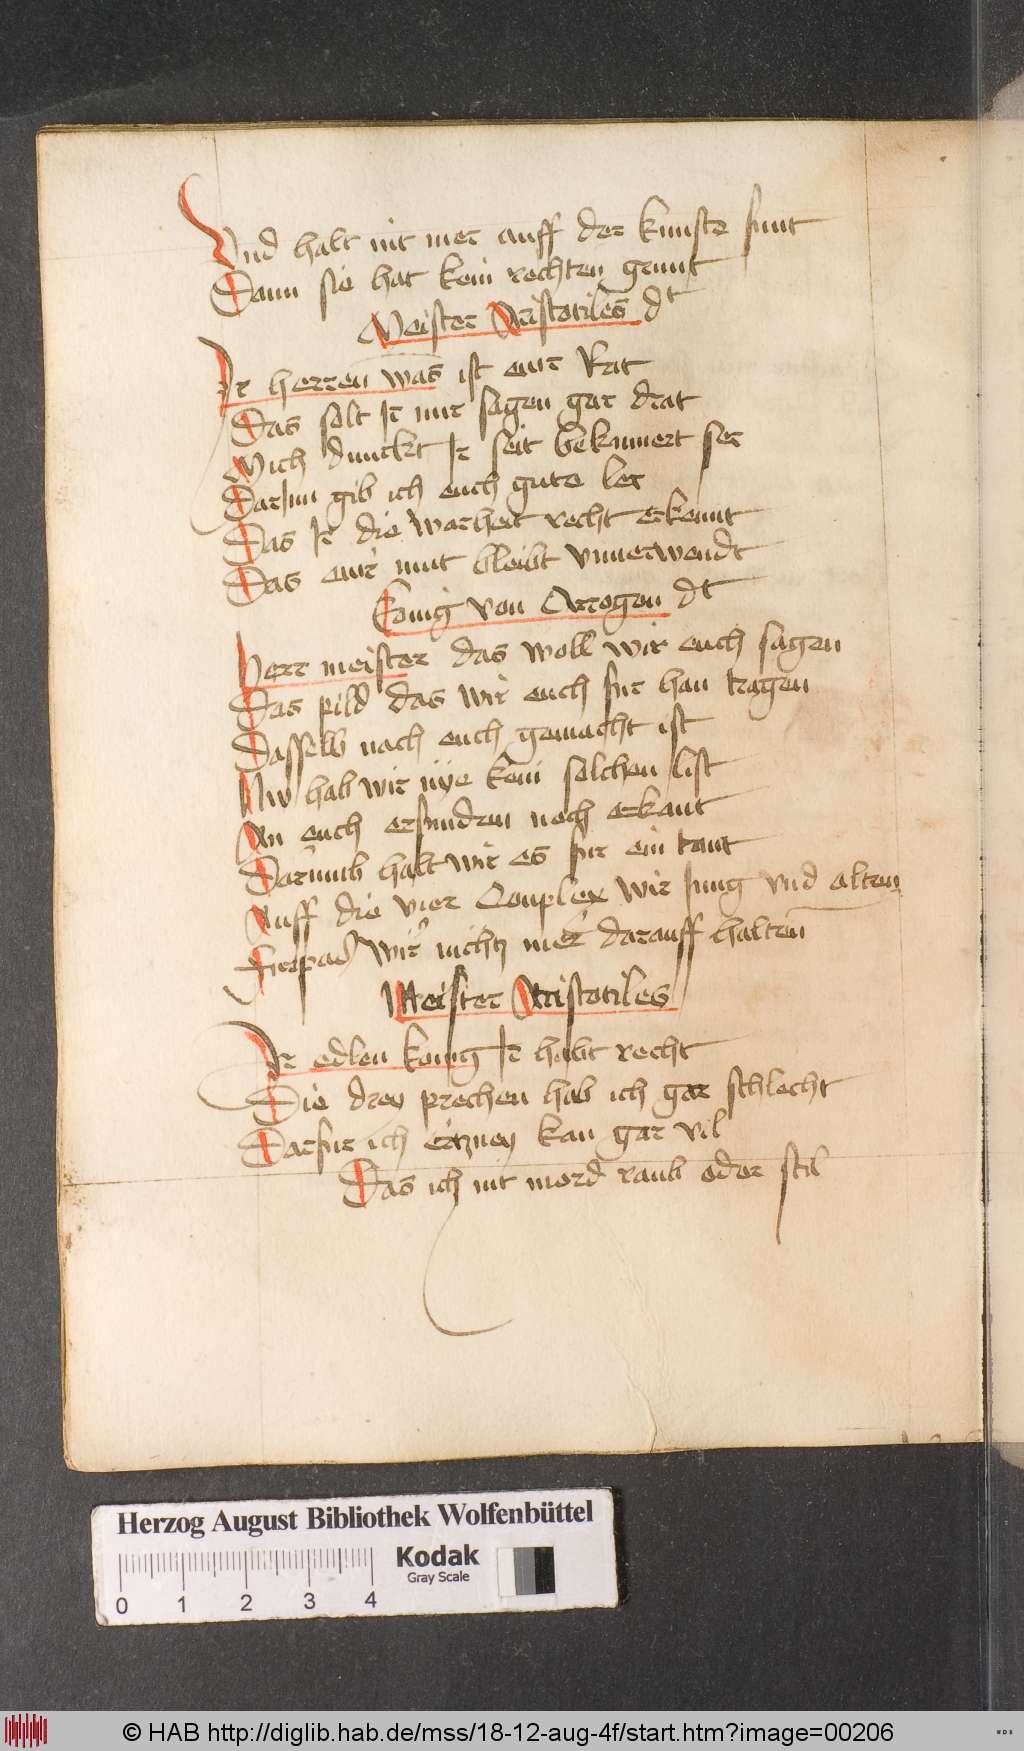 Vnd halt nit mer auff der kunste funt
Dann sie hat kein rechten grunt
Meister Aristotiles dt
Ir herren was ist eur Rat
Das solt Ir mir sagen gar drat
Mich dunckt Ir seit bekumert ser
DarJnn gib ich euch gute ler
Das Ir die warheit recht erkennt
Das eur mut bleibt vnuerwendt
Konig von Arrogon dt
Herr meister das woll wir euch sagen
Das pild das wir euch fur han tragen
Dasselb nach euch gemacht ist
Nw hab wir nye kein solchen list
An euch erfunden noch erkant
Darumb halt wir es fur ein tant
Auff die vier Conplex wir Jung vnd alten
Furpas wir nichtz mer darauff halten
Meister Aristotiles
Ir edlen konig Ir habt recht
Die drey prechen hab ich gar schlecht
Darfur ich ertzney kan gar vil
Das ich nit mord raub oder stil
Herzog August Bibliothek Wolfenbüttel
Kodak
Gray Scale
0 1 2 3 4
© HAB http://diglib.hab.de/mss/18-12-aug-4f/start.htm?image=00206